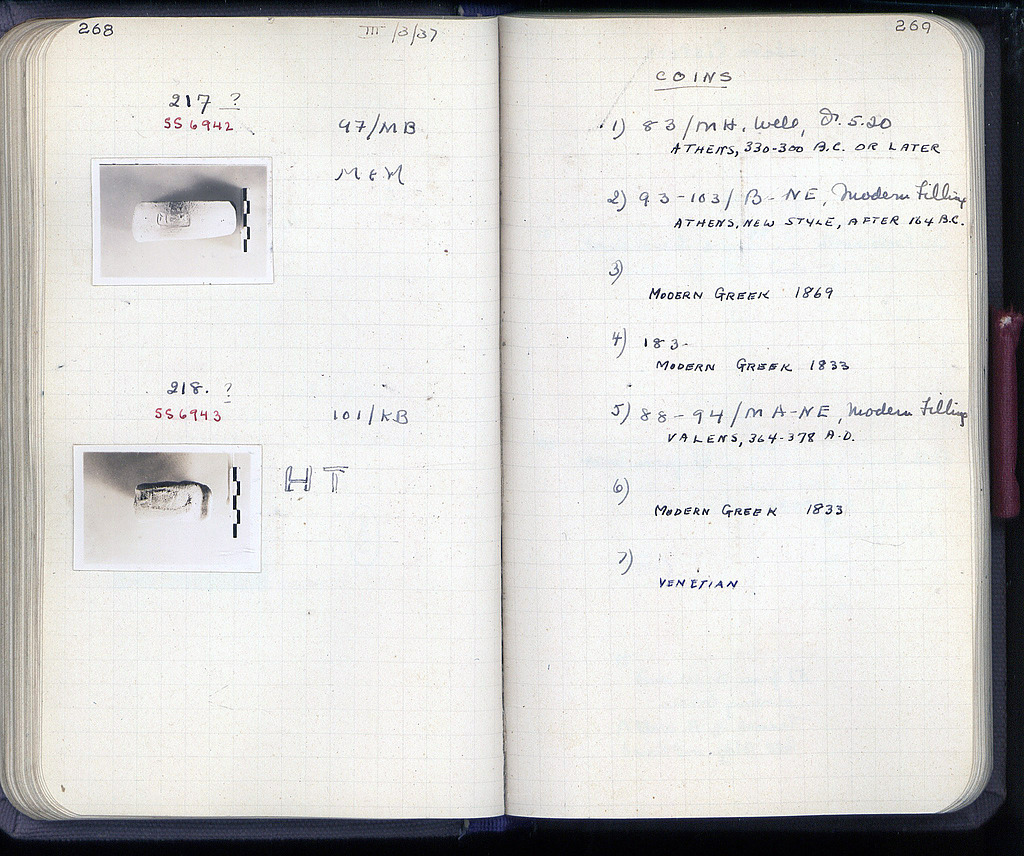 268
III /3/37
217 ?
SS 6942
97/MB
218. ?
SS 6943
101/KB
HT
269
COINS
1) 83/MH. Well, 5.20
ATHENS, 330-300 B.C. OR LATER
2) 93-103/B-NE, Modern Filling
ATHENS, NEW STYLE, AFTER 164 B.C.
3)
MODERN GREEK 1869
4) 183-
MODERN GREEK 1833
5) 88-94/MA-NE, Modern Filling
VALENS, 364-378 A.D.
6)
MODERN GREEK 1833
7)
VENETIAN